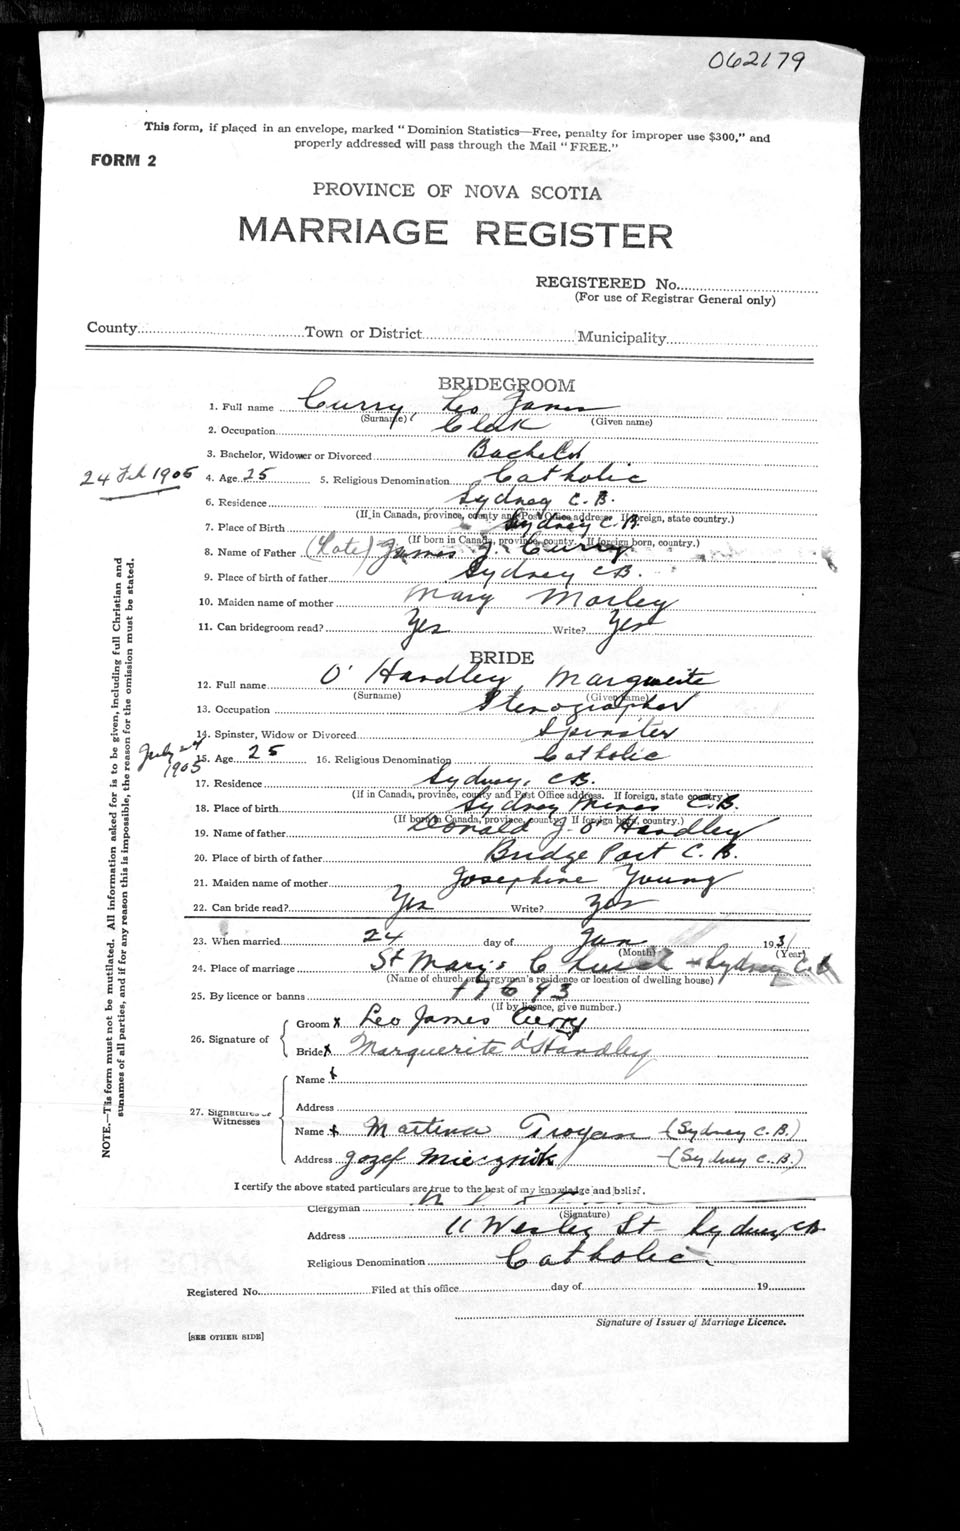 062179
This form, if placed in an envelope, marked "Dominion Statistics—Free, penalty for improper use $300," and
properly addressed will pass through the Mail "FREE."
FORM 2
PROVINCE OF NOVA SCOTIA
MARRIAGE REGISTER
REGISTERED No.
(For use of Registrar General only)
County Town or District Municipality
BRIDEGROOM
1. Full name Curry, Leo James
(Surname) (Given name)
2. Occupation Clerk
3. Bachelor, Widower or Divorced Bachelor
24 Feb 1905 4. Age 25 5. Religious Denomination Catholic
6. Residence Sydney C.B.
(If in Canada, province, county and Post Office address. If foreign, state country.)
7. Place of Birth Sydney C.B.
(If born in Canada, province, county. If foreign born, country.)
8. Name of Father (Late) James J. Curry
9. Place of birth of father Sydney CB.
10. Maiden name of mother Mary Morley
11. Can bridegroom read? Yes Write? Yes
BRIDE
12. Full name O'Handley Marguerite
(Surname) (Given name)
13. Occupation Stenographer
14. Spinster, Widow or Divorced Spinster
July 24 1905 15. Age 25 16. Religious Denomination Catholic
17. Residence Sydney, CB.
(If in Canada, province, county and Post Office address. If foreign, state country.)
18. Place of birth Sydney Mines C.B.
(If born in Canada, province, county. If foreign born, country.)
19. Name of father Donald J. O'Handley
20. Place of birth of father Bridge Port C.B.
21. Maiden name of mother Josephine Young
22. Can bride read? Yes Write? Yes
23. When married 24 day of Jan 1931
(Month) (Year)
24. Place of marriage St Mary's Church Sydney C.B
(Name of church or clergyman's residence or location of dwelling house)
25. By licence or banns 17693
(If by licence, give number.)
26. Signature of
Groom x Leo James Curry
Bride x Marguerite O'Handley
27. Signatures of Witnesses
Name x
Address
Name x Martina Troyan (Sydney C.B.)
Address Jozef Miecznik (Sydney C.B.)
I certify the above stated particulars are true to the best of my knowledge and belief.
Clergyman
(Signature)
Address 11 Wesley St Sydney CB
Religious Denomination Catholic
Registered No. Filed at this office day of 19
Signature of Issuer of Marriage Licence.
[SEE OTHER SIDE]
NOTE.—Tis form must not be mutilated. All information asked for is to be given, including full Christian and
surnames of all parties, and if for any reason this is impossible, the reason for the omission must be stated.